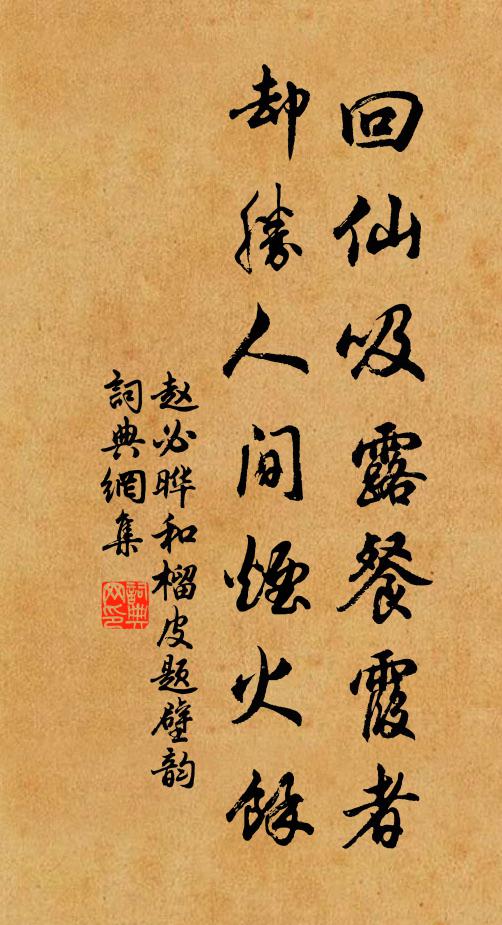 回仙吸露餐霞者
却勝人间煙火餘
赵必晔和榴皮题壁韵
詞典網集
詞典网印